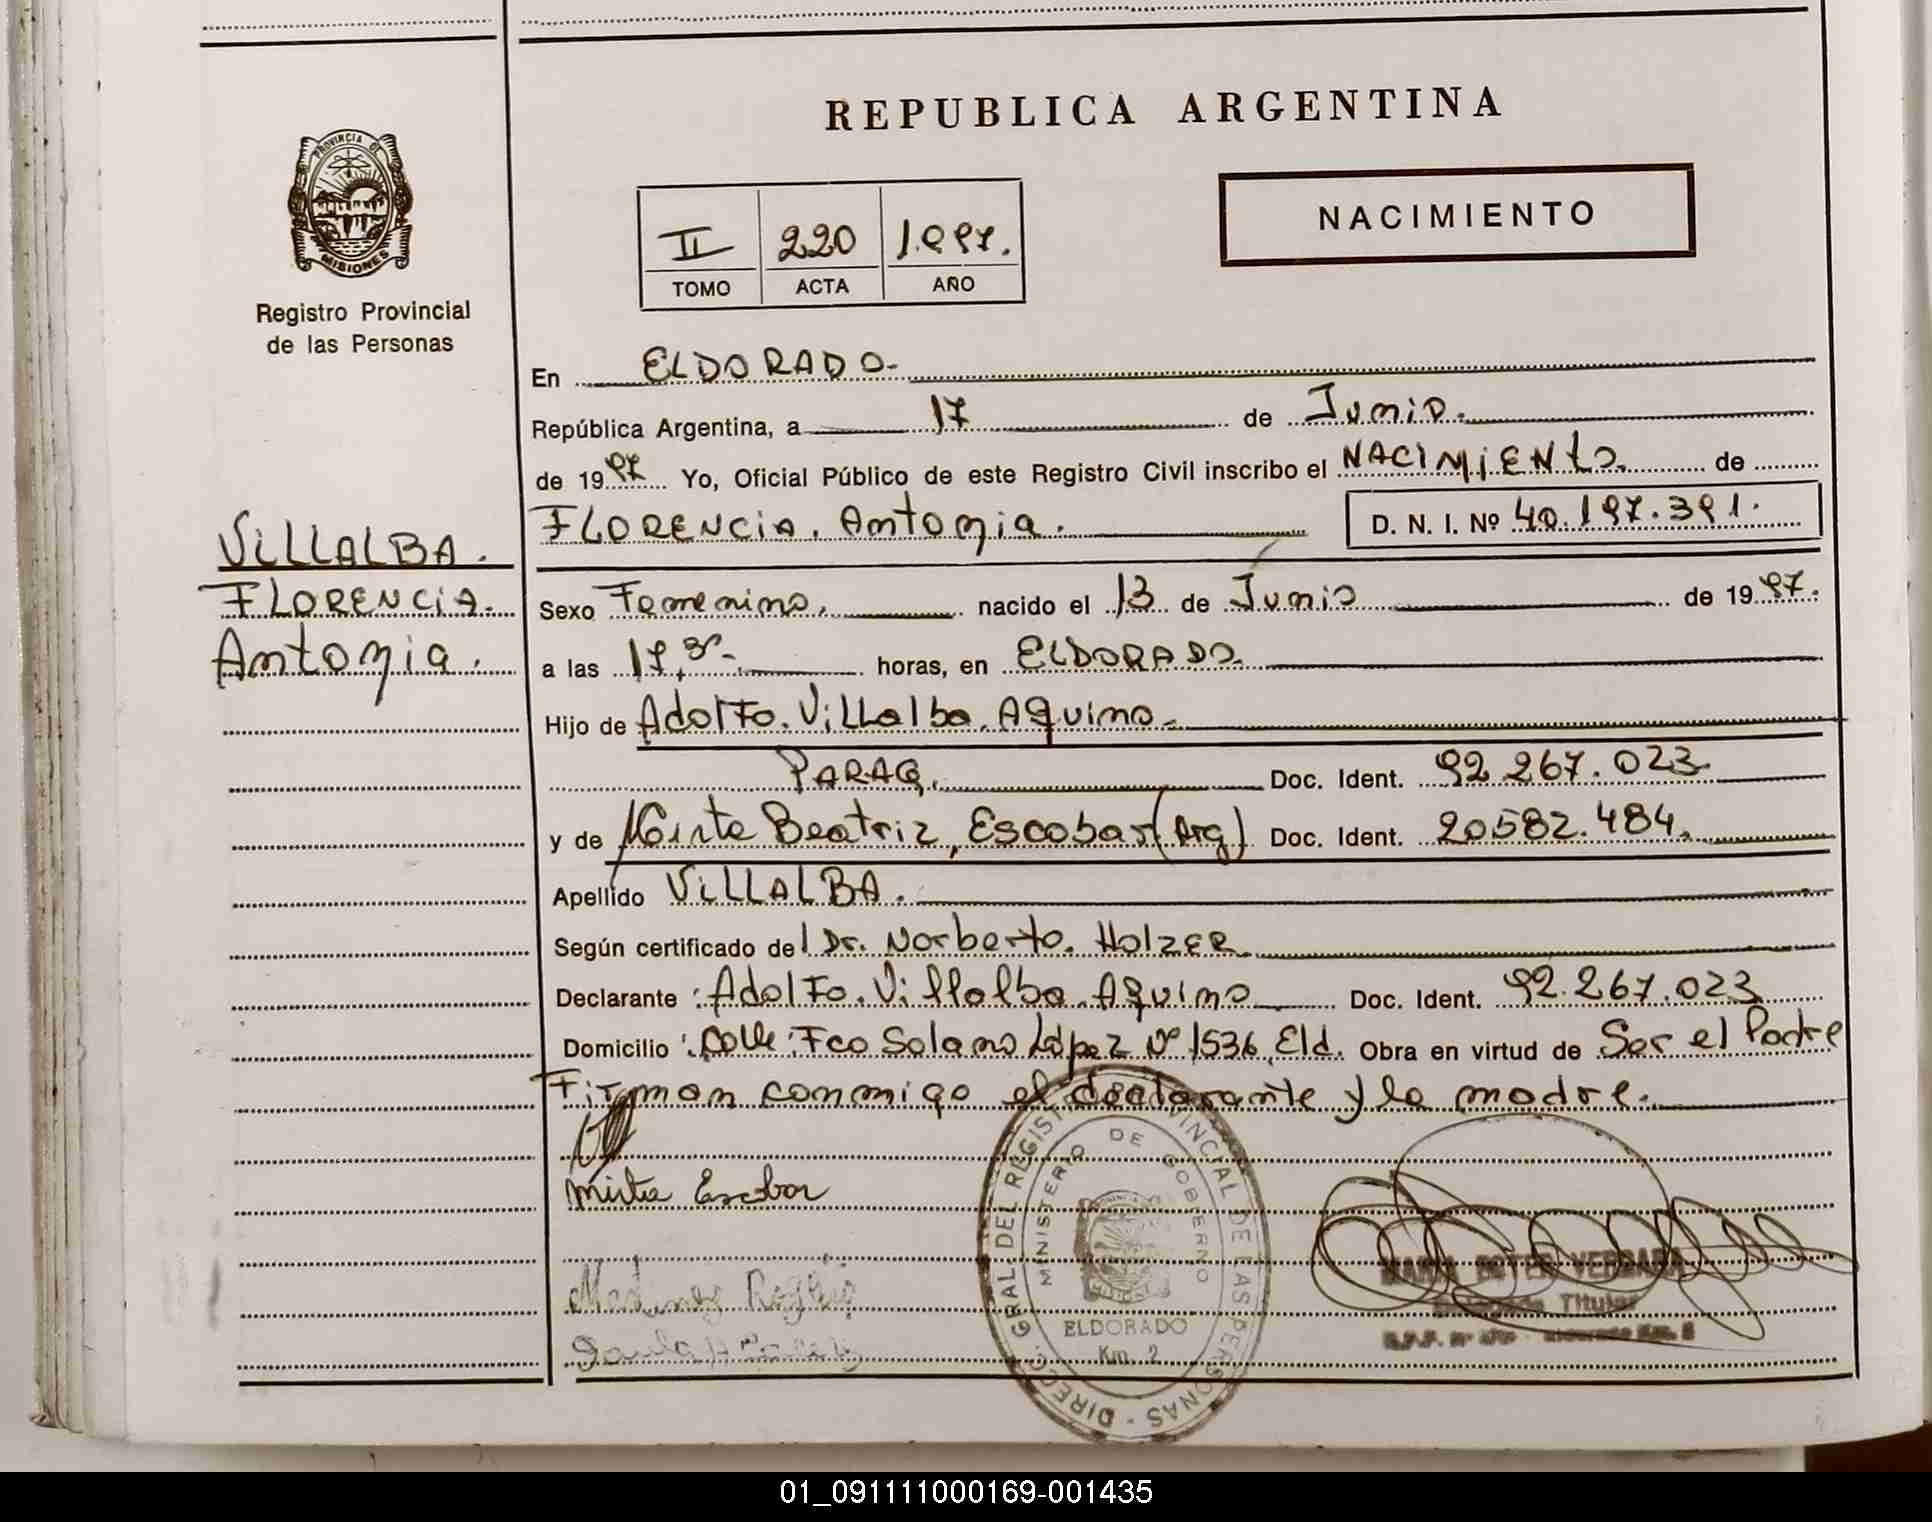 REPUBLICA ARGENTINA
PROVINCIA DE
MISIONES
Registro Provincial
de las Personas
NACIMIENTO
II 220 1.997.
TOMO ACTA AÑO
En ELDORADO.
República Argentina, a 17 de Junio.
de 1997 Yo, Oficial Público de este Registro Civil inscribo el NACIMIENTO. de
FLORENCIA. Antonia. D. N. I. Nº 40.197.391.
VILLALBA.
FLORENCIA.
Antonia.
Sexo Femenino. nacido el 13 de Junio de 1997.
a las 17,30. horas, en ELDORADO.
Hijo de Adolfo. Villalba. Aquino.
PARAG. Doc. Ident. 92.267.023
y de Mirta Beatriz, Escobar (Arg) Doc. Ident. 20.582.484.
Apellido VILLALBA.
Según certificado del Dr. Norberto. Holzer.
Declarante: Adolfo. Villalba. Aquino Doc. Ident. 92.267.023
Domicilio: Calle: Fco Solano López Nº 1536, Eld. Obra en virtud de Ser el Padre
Firman conmigo el declarante y la madre.
Mirta Escobar
DIRECC. GRAL DEL REGISTRO PROVINCIAL DE LAS PERSONAS
MINISTERIO DE GOBIERNO
ELDORADO
Km. 2
VERGARA
Titular
01_091111000169-001435